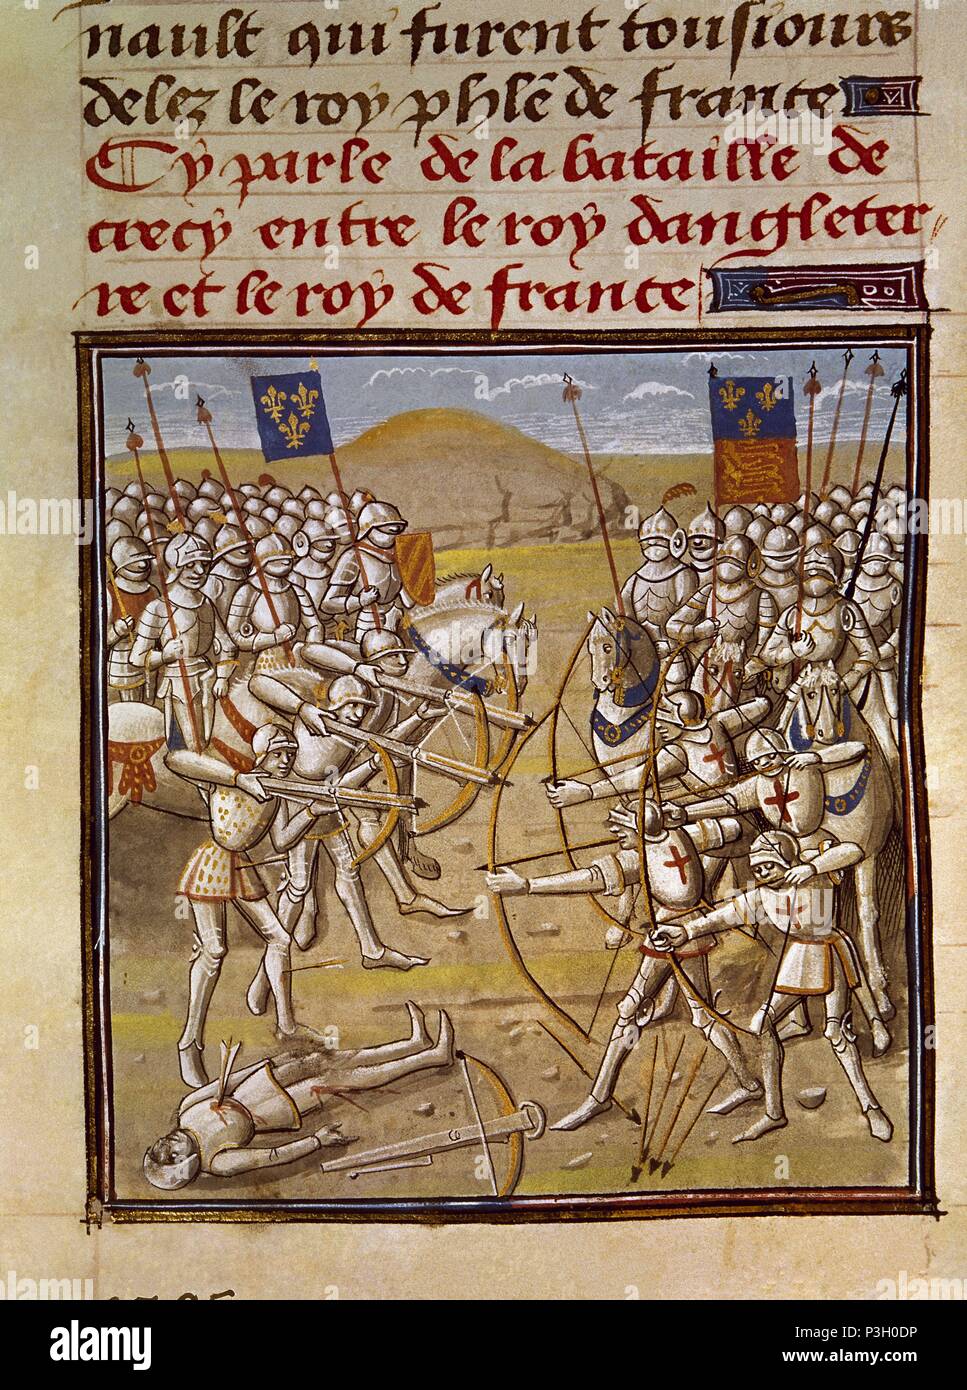 nault qui furent tousiours
delez le roy phle͂ de france
Cy parle de la bataille de
crecy entre le roy dangleter
re et le roy de france
alamy
Image ID: P3H0DP
www.alamy.com